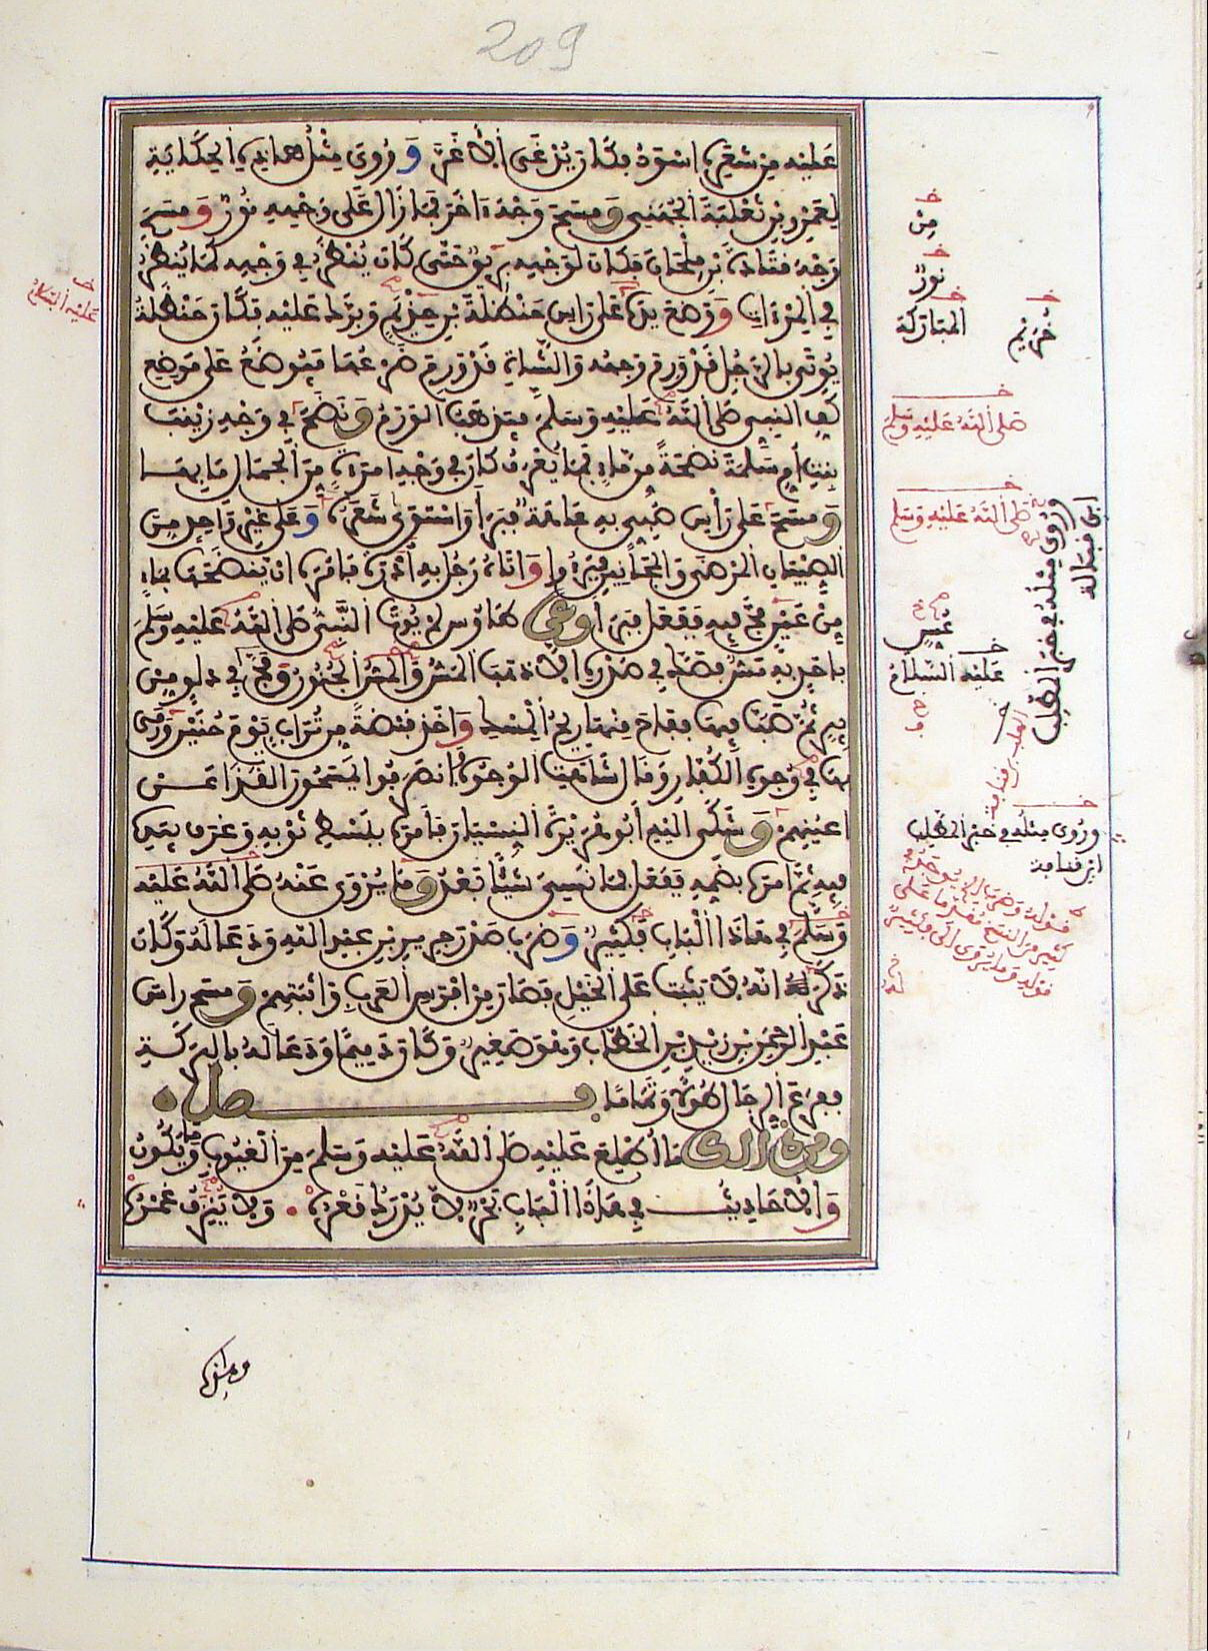 209
عليه من شعره اسود فكان يدعى الاغر وروي مثل هذه الحكاية
لعمرو بن ثعلبة الجهني ومسح وجه اخر فما زال على وجهه نور ومسح
وجه قتادة بن ملحان فكان لوجهه بريق حتى كان ينظر في وجهه كما ينظر
في المرءاة ووضع يده على راس حنظلة بن حذيم وبرك عليه فكان حنظلة
يوتى بالرجل قد ورم وجهه والشاة قد ورم ضرعها فيوضع على موضع
كف النبي صلى الله عليه وسلم فيذهب الورم ونضح في وجه زينب
بنت ام سلمة نضحة من ماء فما يعرف كان في وجه امراة من الجمال ما بها
ومسح على راس صبي به عاهة فبرا واستوى شعره وعلى غير واحد من
الصبيان المرضى والمجانين فبرءوا واتاه رجل به ادرة فامره ان ينضحها بماء
من عين مج فيها ففعل فبرا وعن طاوس لم يوت النبي صلى الله عليه وسلم
باحد به مس فصك في صدره الا ذهب المس والمس الجنون ومج في دلو من
بير ثم صب فيها ففاح منها ريح المسك واخذ قبضة من تراب يوم حنين ورمى
بها في وجوه الكفار وقال شاهت الوجوه فانصرفوا يمسحون القذا عن
اعينهم وشكى اليه ابو هريرة النسيان فامره ببسط ثوبه وغرف بيده
فيه ثم امره بضمه ففعل فما نسي شيئا بعد وما يروى عنه صلى الله عليه
وسلم في هذا الباب فكثير وضرب صدر جرير بن عبد الله ودعا له وكان
ذكر له انه لا يثبت على الخيل فصار من افرس العرب واثبتهم ومسح راس
عبد الرحمن بن زيد بن الخطاب وهو صغير وكان دميما ودعا له بالبركة
ففرع الرجال طولا وتماما فصل
ومن ذلك ما اطلع عليه صلى الله عليه وسلم من الغيوب وما يكون
والاحاديث في هذا الباب بحر لا يدرك قعره ولا ينزف غمره
من
نور
المباركة
حذيم
عليه السلام
صلى الله عليه وسلم
صلى الله عليه وسلم
عليه السلام
وروي مثله في خبر المهلب
ابن قبالة
وروي مثله في خبر المهلب
ابن قبالة